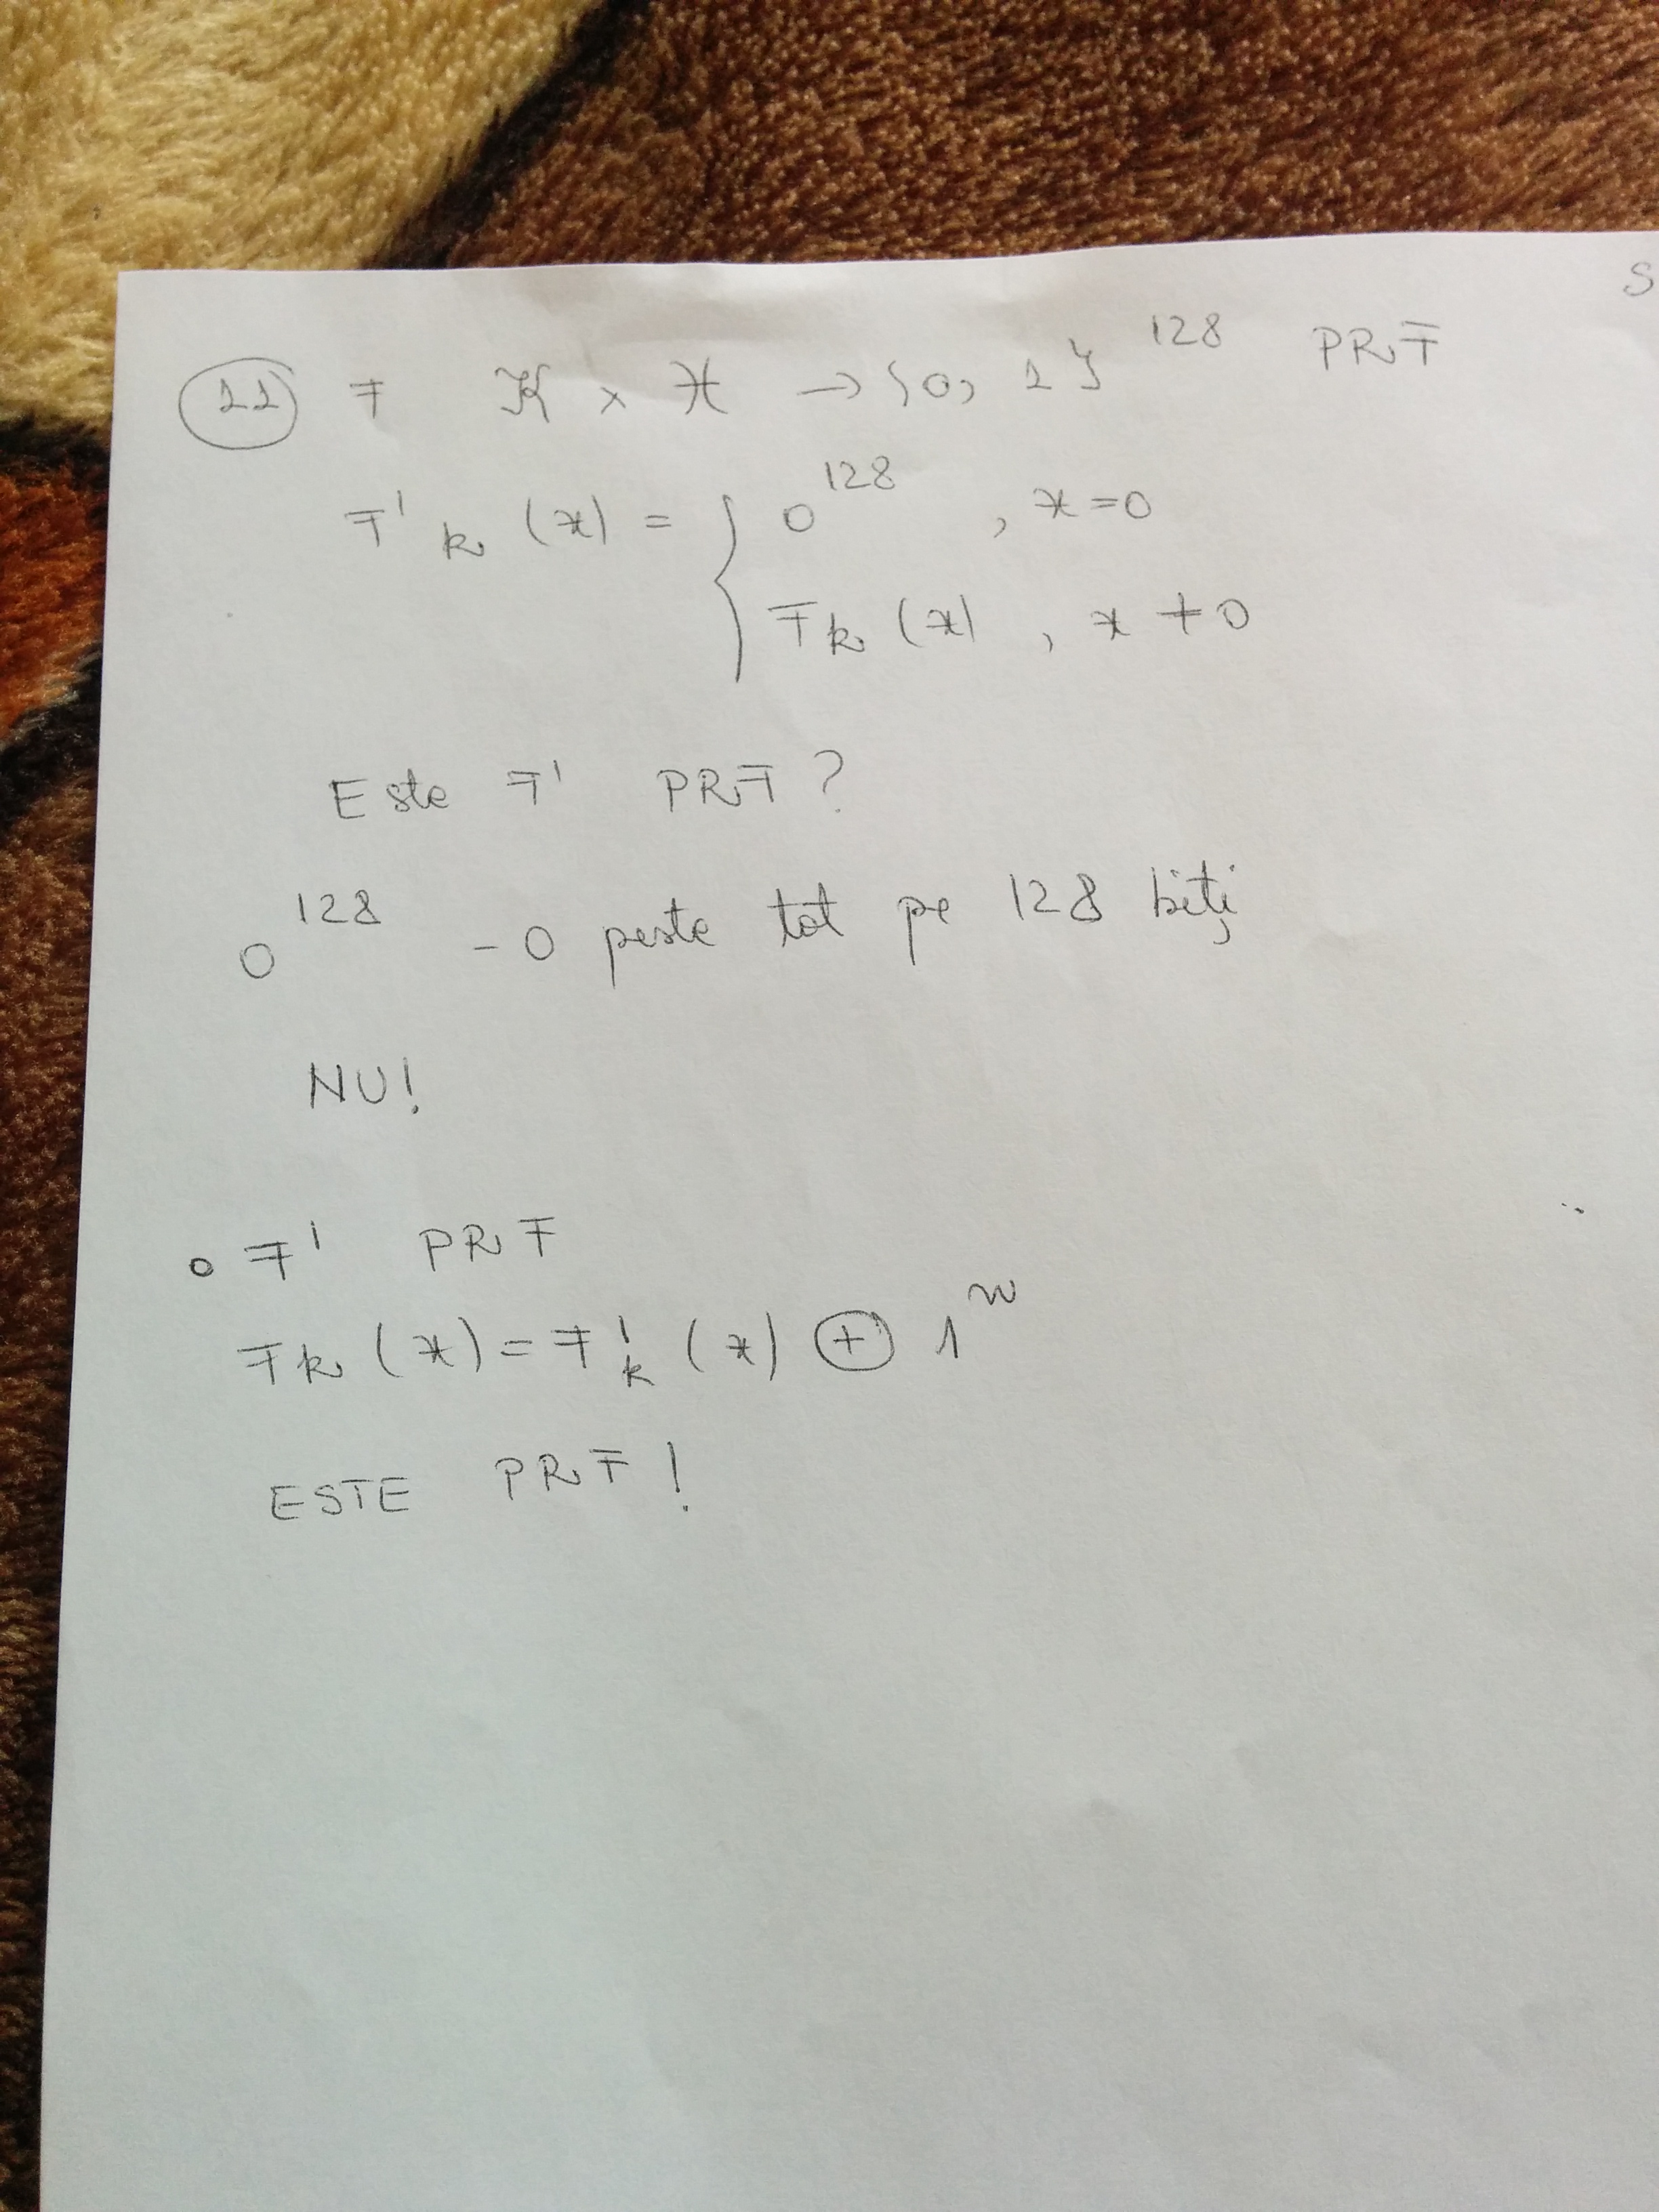 S
11 F K x X → {0, 1}^128 PRF
F'k (x) = { 0^128 , x=0
Fk (x) , x ≠ 0
Este F' PRF?
0^128 - 0 peste tot pe 128 biți
NU!
o F' PRF
Fk (x) = F'k (x) ⊕ 1^n
ESTE PRF!